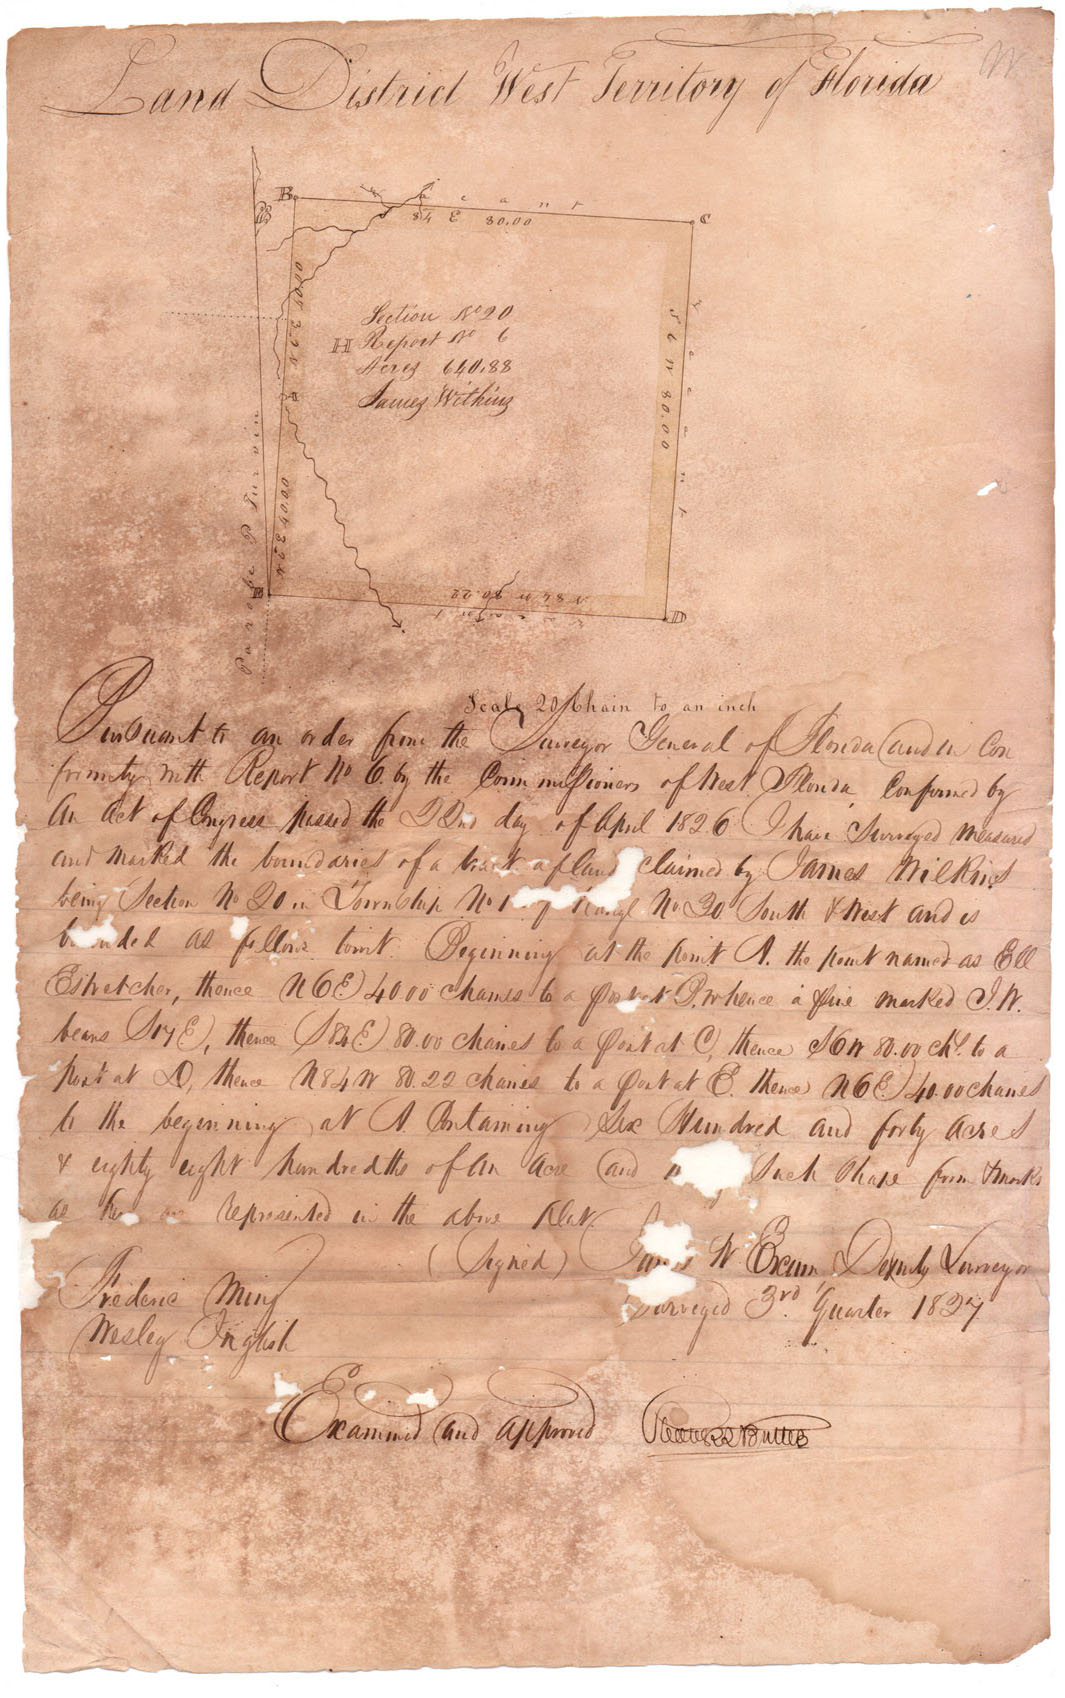 Land District West Territory of Florida
B
V a c a n t
S 84 E 80.00
C
N 6 E 40.00
Section No 20
H Report No 6
Acres 640.88
James Wilkins
S 6 W 80.00
V a c a n t
N 6 E 40.00
N 84 W 80.22
V a c a n t
D
Scale 20 Chain to an inch
Pursuant to an order from the Surveyor General of Florida and in Con
formity with Report No 6 by the Commissioners of West Florida, Confirmed by
An Act of Congress passed the 22nd day of April 1826 I have Surveyed measured
and marked the boundaries of a tract of land claimed by James Wilkins
being Section No 20 in Township No 1 of Range No 30 South & West and is
bounded as follows towit. Beginning at the point A. the point named as Ell
Estretcher, thence N6E) 40.00 chaines to a Post at B. whence a pine marked J.W.
bears S17E), thence (S84E) 80.00 chaines to a Post at C, thence S6W 80.00 chs. to a
post at D, thence N84W 80.22 chaines to a Post at E. thence N6E) 40.00 chaines
to the beginning at A Containing Six Hundred and forty acres
& eighty eight hundredths of an acre and Such Shape form & marks
as are represented in the above Plat.
(Signed) James W Exum Deputy Surveyor
Frederic Ming
Surveyed 3rd Quarter 1827
Wesley English
Examined and approved Butler